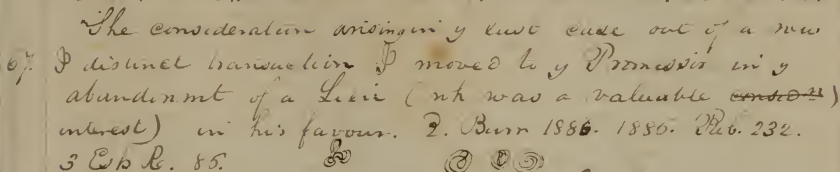 The consideration arising in y last case out of a new
67. & distinct transaction & moved to y Promissor in y
abandonmt of a Lien (wh was a valuable considn)
interest) in his favour. 2. Burr 1886. 1886. Reb. 232.
3 Esp R. 86.